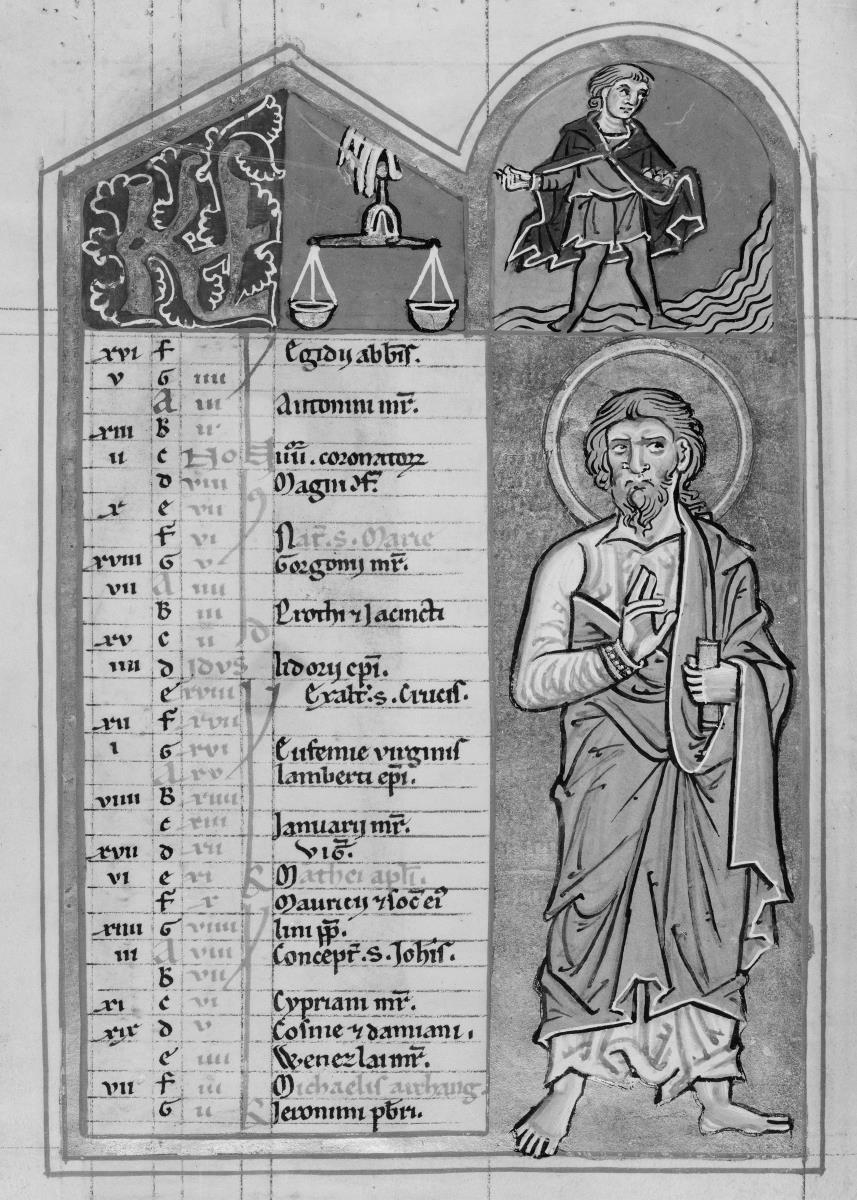 KL
xvi f Egidij abb̄is.
v G iiii
A iii Antonini mr̄.
xiii B ii
ii c No iiii. coronatorꝝ
d viii Magni ɔf.
x e vii
f vi Nat̄. s. Marie
xviii G v Gorgonij mr̄.
vii A iiii
B iii Prothi ⁊ Jacincti
xv c ii
iiii d Idus lidorij ep̄i.
e xviii Exalt̄. s. Crucis.
xii f xvii
i G xvi Eufemie virginis
A xv lamberti ep̄i.
viiii B xiiii
c xiii Januarij mr̄.
xvii d xii viḡ.
vi e xi Mathei apl̄i.
f x Mauricij ⁊ soc̄ ei᷒
xiiii G viiii lini pp̄.
iii A viii Concept̄. s. Joh̄is.
B vii
xi c vi Cypriani mr̄.
xix d v Cosme ⁊ damiani.
e iiii Wenezlai mr̄.
vii f iii Michaelis archang.
G ii Jeronimi pb̄ri.